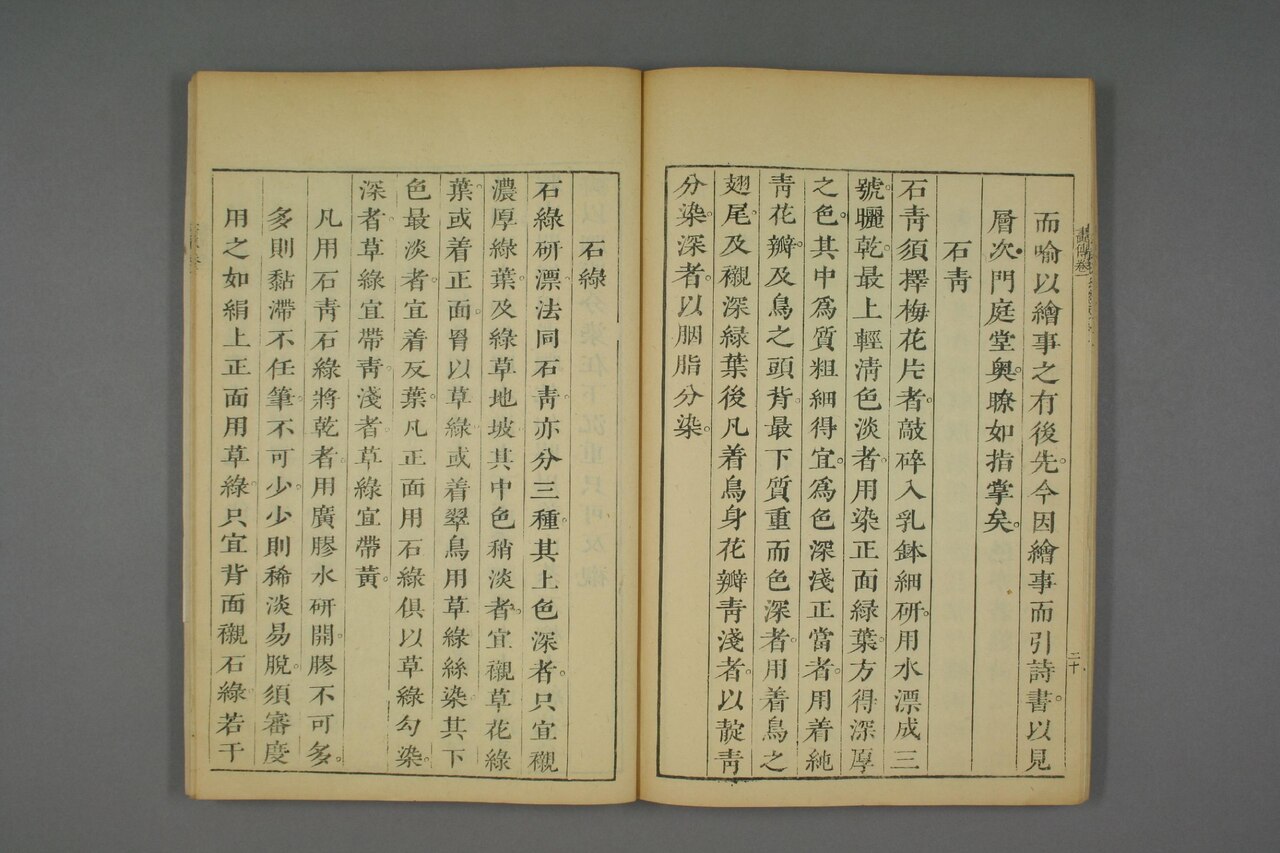 畫傳卷一
二十
而喻以繪事之有後先。今因繪事而引詩書。以見
層次。門庭堂奧。瞭如指掌矣。
石靑
石靑須擇梅花片者。敲碎入乳鉢細研。用水漂成三
號。曬乾。最上輕淸色淡者。用染正面緑葉。方得深厚
之色。其中爲質粗細得宜。爲色深淺正當者。用着純
靑花瓣。及鳥之頭背。最下質重而色深者。用着鳥之
翅尾。及襯深緑葉後。凡着鳥身花瓣。靑淺者。以靛靑
分染。深者。以胭脂分染。
石綠
石綠研漂法同石靑。亦分三種。其上色深者。只宜襯
濃厚綠葉。及綠草地坡。其中色稍淡者。宜襯草花綠
葉。或着正面。胷以草綠。或着翠鳥。用草綠絲染。其下
色最淡者。宜着反葉。凡正面用石綠。俱以草綠勾染。
深者。草綠宜帶靑。淺者。草綠宜帶黃。
凡用石靑石綠。將乾者。用廣膠水研開。膠不可多。
多則黏滯不任筆。不可少。少則稀淡易脫。須審度
用之。如絹上正面用草綠。只宜背面襯石綠。若干